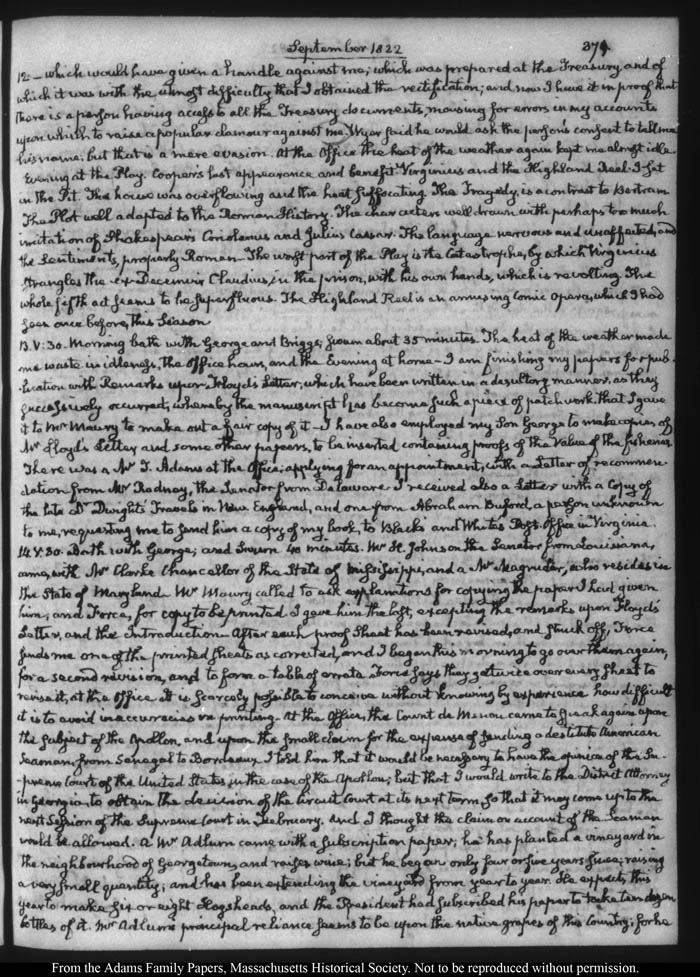 September 1822 379.
12 - which would have given a handle against me; which was prepared at the Treasury, and of
which it was with the utmost difficulty that I obtained the rectification; and now I have it in proof that
there is a person having access to all the Treasury documents, mousing for errors in my accounts
upon which to raise a popular clamour against me. Wyer said he would ask the person's consent to tell me
his name: but that is a mere evasion. At the Office the heat of the weather again kept me almost idle.
Evening at the Play. Cooper's last appearance and benefit. Virginius and the Highland Reel. I sat
in the Pit. The house was overflowing and the heat suffocating. The Tragedy is a contrast to Bertram.
The Plot well adapted to the Roman History. The characters well drawn with perhaps too much
imitation of Shakespear's Coriolanus and Julius Caesar. The language nervous and unaffected, and
the Sentiments, properly Roman. The worst part of the Play is the Catastrophe, by which Virginius
strangles the ex-Decemvir Claudius, in the prison, with his own hands, which is revolting. The
whole fifth act seems to be superfluous. The Highland Reel is an amusing Comic Opera, which I had
seen once before, this Season
13. V:30. Morning bath with George and Briggs; swum about 35 minutes. The heat of the weather made
me waste in idleness, the Office hours, and the Evening at home - I am finishing my papers for pub-
lication with Remarks upon Floyd's Letter; which have been written in a desultory manner, as they
successively occurred, whereby the manuscript has become such a piece of patchwork that I gave
it to Mr Maury to make out a fair copy of it - I have also employed my Son George to make copies of
Mr Lloyd's Letter and some other papers, to be inserted containing proofs of the Value of the fisheries.
There was a Mr T. Adams at the Office, applying for an appointment, with a Letter of recommen-
dation from Mr Rodney, the Senator from Delaware. I received also a Letter with a Copy of
the late Dr Dwight's Travels in New England, and one from Abraham Buford, a person unknown
to me, requesting me to send him a copy of my book, to Blacks and Whites Post-Office in Virginia.
14. V:30. Bath with George; and swum 40 minutes. Mr H. Johnson the Senator from Louisiana,
came, with Mr Clarke Chancellor of the State of Mississippi, and a Mr Magruder, who resides in
the State of Maryland. Mr Maury called to ask explanations for copying the paper I had given
him; and Force, for copy to be printed. I gave him the last, excepting the remarks upon Floyd's
Letter, and the Introduction. After each proof Sheet has been revised, and struck off, Force
sends me one of the printed sheets as corrected, and I began this morning to go over them again,
for a second revision, and to form a table of errata. Force says they get twice over every sheet to
revise it, at the Office. It is scarcely possible to conceive without knowing by experience how difficult
it is to avoid inaccuracies in printing. At the Office, the Count de Menou came to speak again upon
the subject of the Apollon, and upon the small claim for the expense of sending a destitute American
Seaman, from Senegal to Bordeaux. I told him that it would be necessary to have the opinion of the Su-
-preme Court of the United States, in the case of the Apollon; but that I would write to the District Attorney
in Georgia to obtain the decision of the Circuit Court at its next term, so that it may come up to the
next Session of the Supreme Court in February. And I thought the claim on account of the Seaman
would be allowed. A Mr Adlum came with a subscription paper; he has planted a vineyard in
the neighbourhood of Georgetown, and raises wine; but he began only four or five years since; raising
a very small quantity; and has been extending the vineyard from year to year. He expects this
year to make six or eight Hogsheads, and the President had subscribed his paper to take ten dozen
bottles of it. Mr Adlum's principal reliance seems to be upon the native grapes of this Country; for he
From the Adams Family Papers, Massachusetts Historical Society. Not to be reproduced without permission.